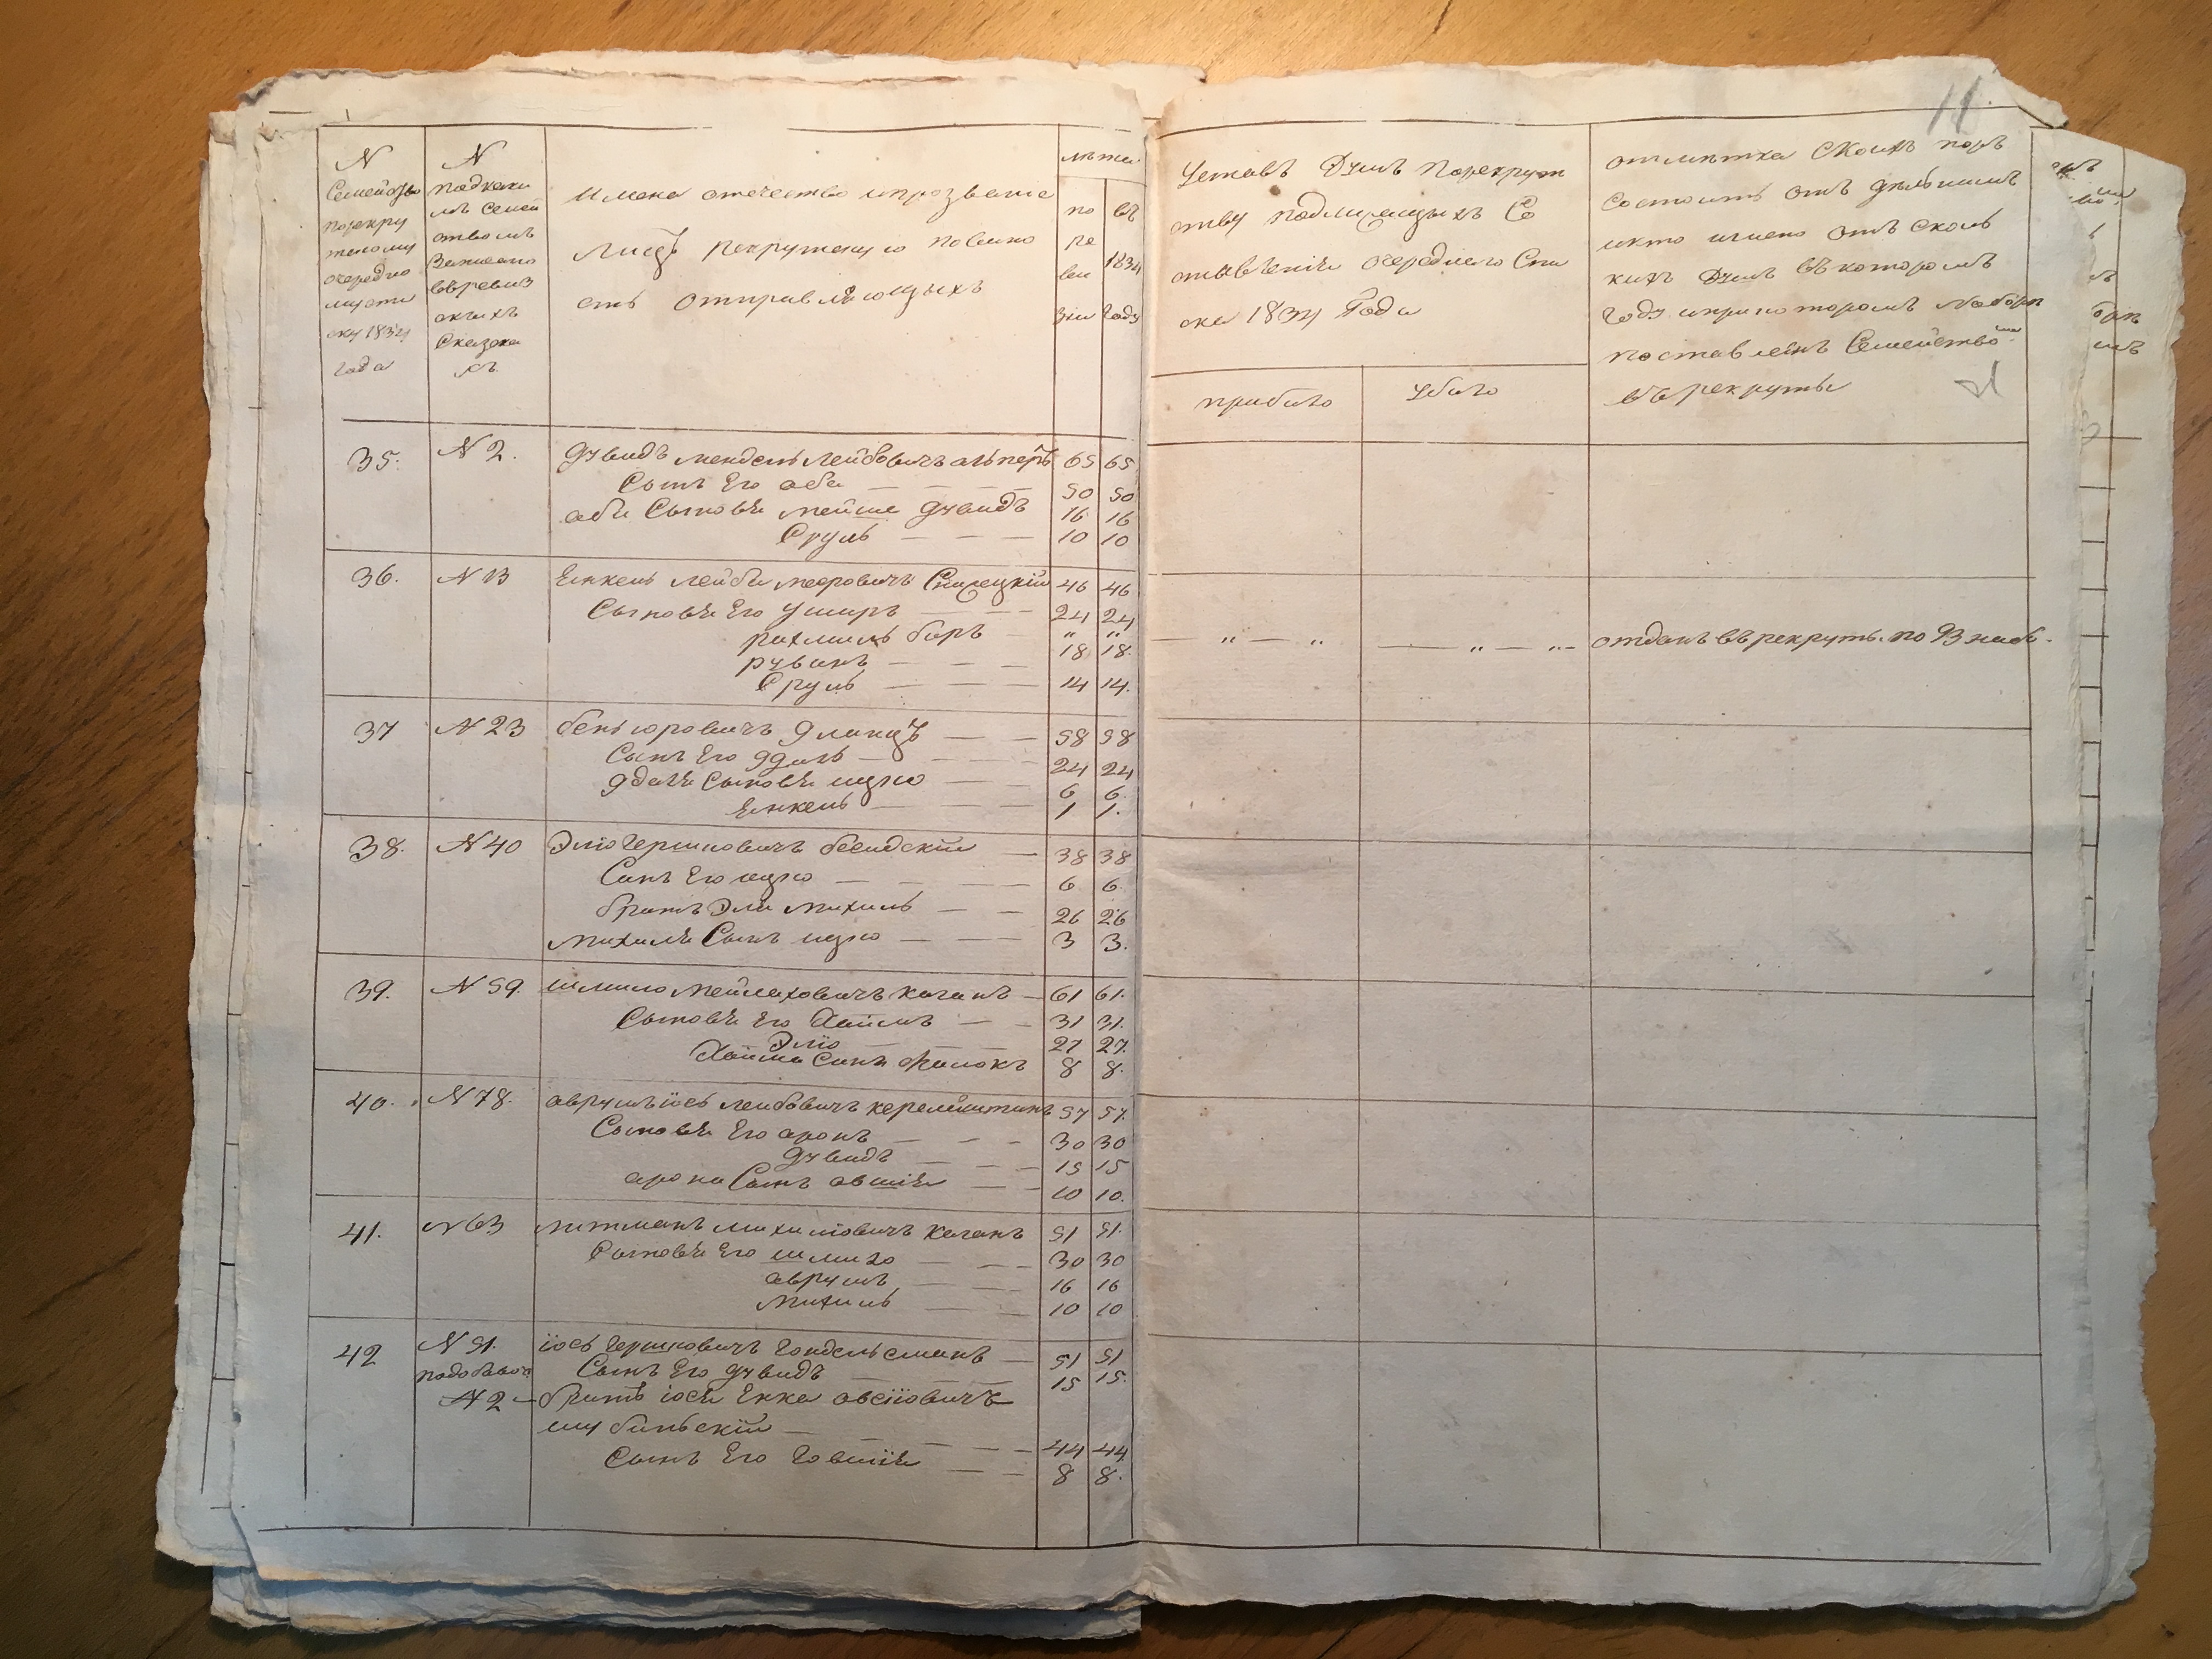 11.
N
Семейства
порекру
тскому
очередно
му спи
ску 1834
года
N
подкаки
мъ Семей
ствомъ
Записано
въ ревиз
скихъ
Сказка
хъ
Имена отечество и прозвание
Лицъ рекрутскую повино
сть отправляющыхъ
лета
по
ре
ви
зии
въ
1834
Году
Уставъ Душъ порекрут
ству подлижащыхъ Со
ставления очереднего Спи
ска 1834 Года
прибыло
убыло
отметка Сколь поръ
Состоитъ отъ
икто имено отъ сколь
кихъ Душъ въ которомъ
Году ипри котором наборъ
поставленъ Семейство
въ рекруты
35. N 2. Дувидъ мендель Лейбовичъ альперъ 65 65
Сынъ Его аба — — — 50 50
абы Сыновья мейше дувидъ 16 16
Сруль — — — 10 10
36. N 13 Янкель лейба мееровичъ Спицецкий 46 46
Сыновья Его Ушеръ — — 24 24
рахмиль беръ — „ „ — „ — „ — „ — „ отданъ въ рекруты по 93 наб.
рувинъ — — — 18 18.
Сруль — — — 14 14.
37 N 23 бень юровичъ Гланцъ — — 58 58
Сынъ Его Эдель — — — 24 24
Эделя Сыновья ицко — — 6 6.
Янкель — — — 1 1.
38. N 40 Элю Гершковичъ бесидский — 38 38
Сынъ Его ицко — — — 6 6.
братъ Эли Михиль — — 26 26
Михиля Сынъ ицко — — 3 3.
39. N 59. шмило мейлаховичъ каганъ — 61 61.
Сыновья Его Хаимъ — — 31 31.
Элїо — — 27 27.
Хаима Сынъ Фалокъ 8 8.
40. N 78. аврумъ іось лейбовичъ 57 57.
Сыновья Его аронъ — — 30 30
Дувидъ — — 15 15
арона Сынъ овшия — — 10 10.
41. N 63 литманъ михилевичъ каганъ 51 51.
Сыновья Его шмило — — 30 30
аврумъ — — 16 16
михиль — — 10 10
42 N 51. іось Гершковичъ Гондельсманъ — 51 51
Сынъ Его дувидъ — 15 15.
N 2 — братъ іося Екка овсїіовичъ
шубинский — — — 44 44
Сынъ Его Говшия — — 8 8.